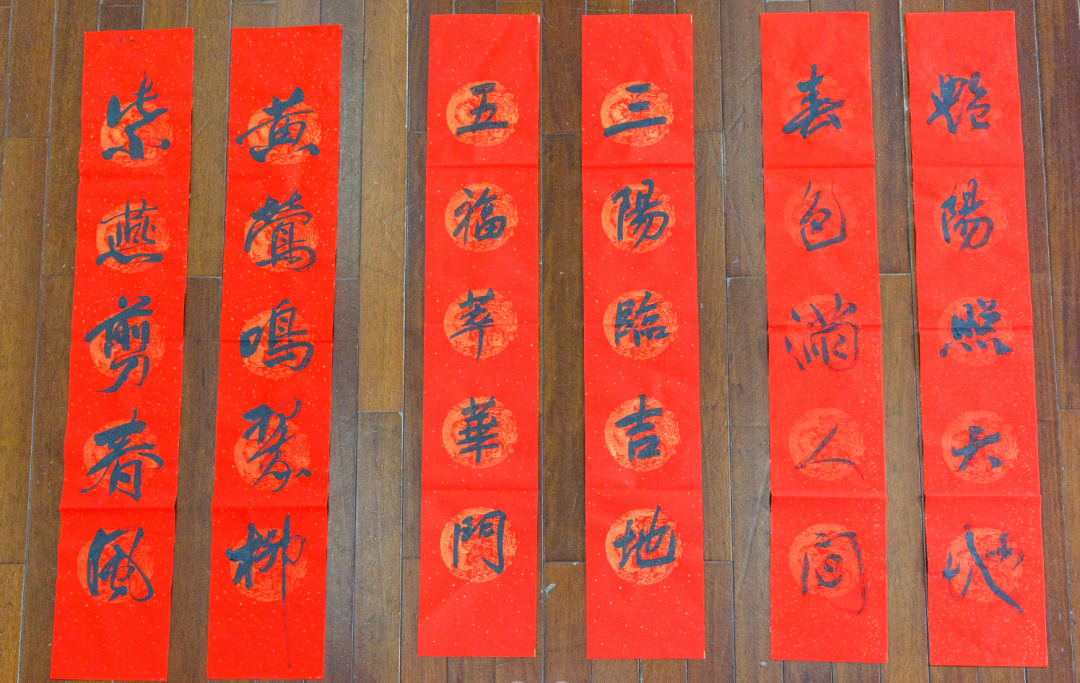 艷陽照大地
春色滿人間
三陽臨吉地
五福萃華門
黃鶯鳴翠柳
紫燕剪春風